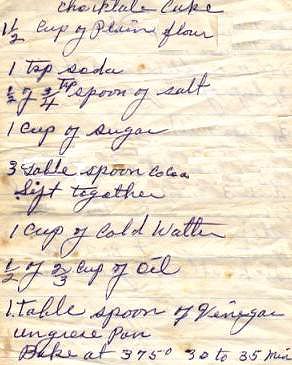 Chocklate Cake
1 1/2 Cup of Plain flour
1 Tsp soda
1/2 of 3/4 tsp spoon of salt
1 Cup of Sugar
3 table spoon Cocoa
Sift together
1 Cup of Cold Watter
1/2 of 2/3 Cup of Oil
1. table spoon of Vinegar
ungrese Pan
Bake at 375° 30 to 35 Min